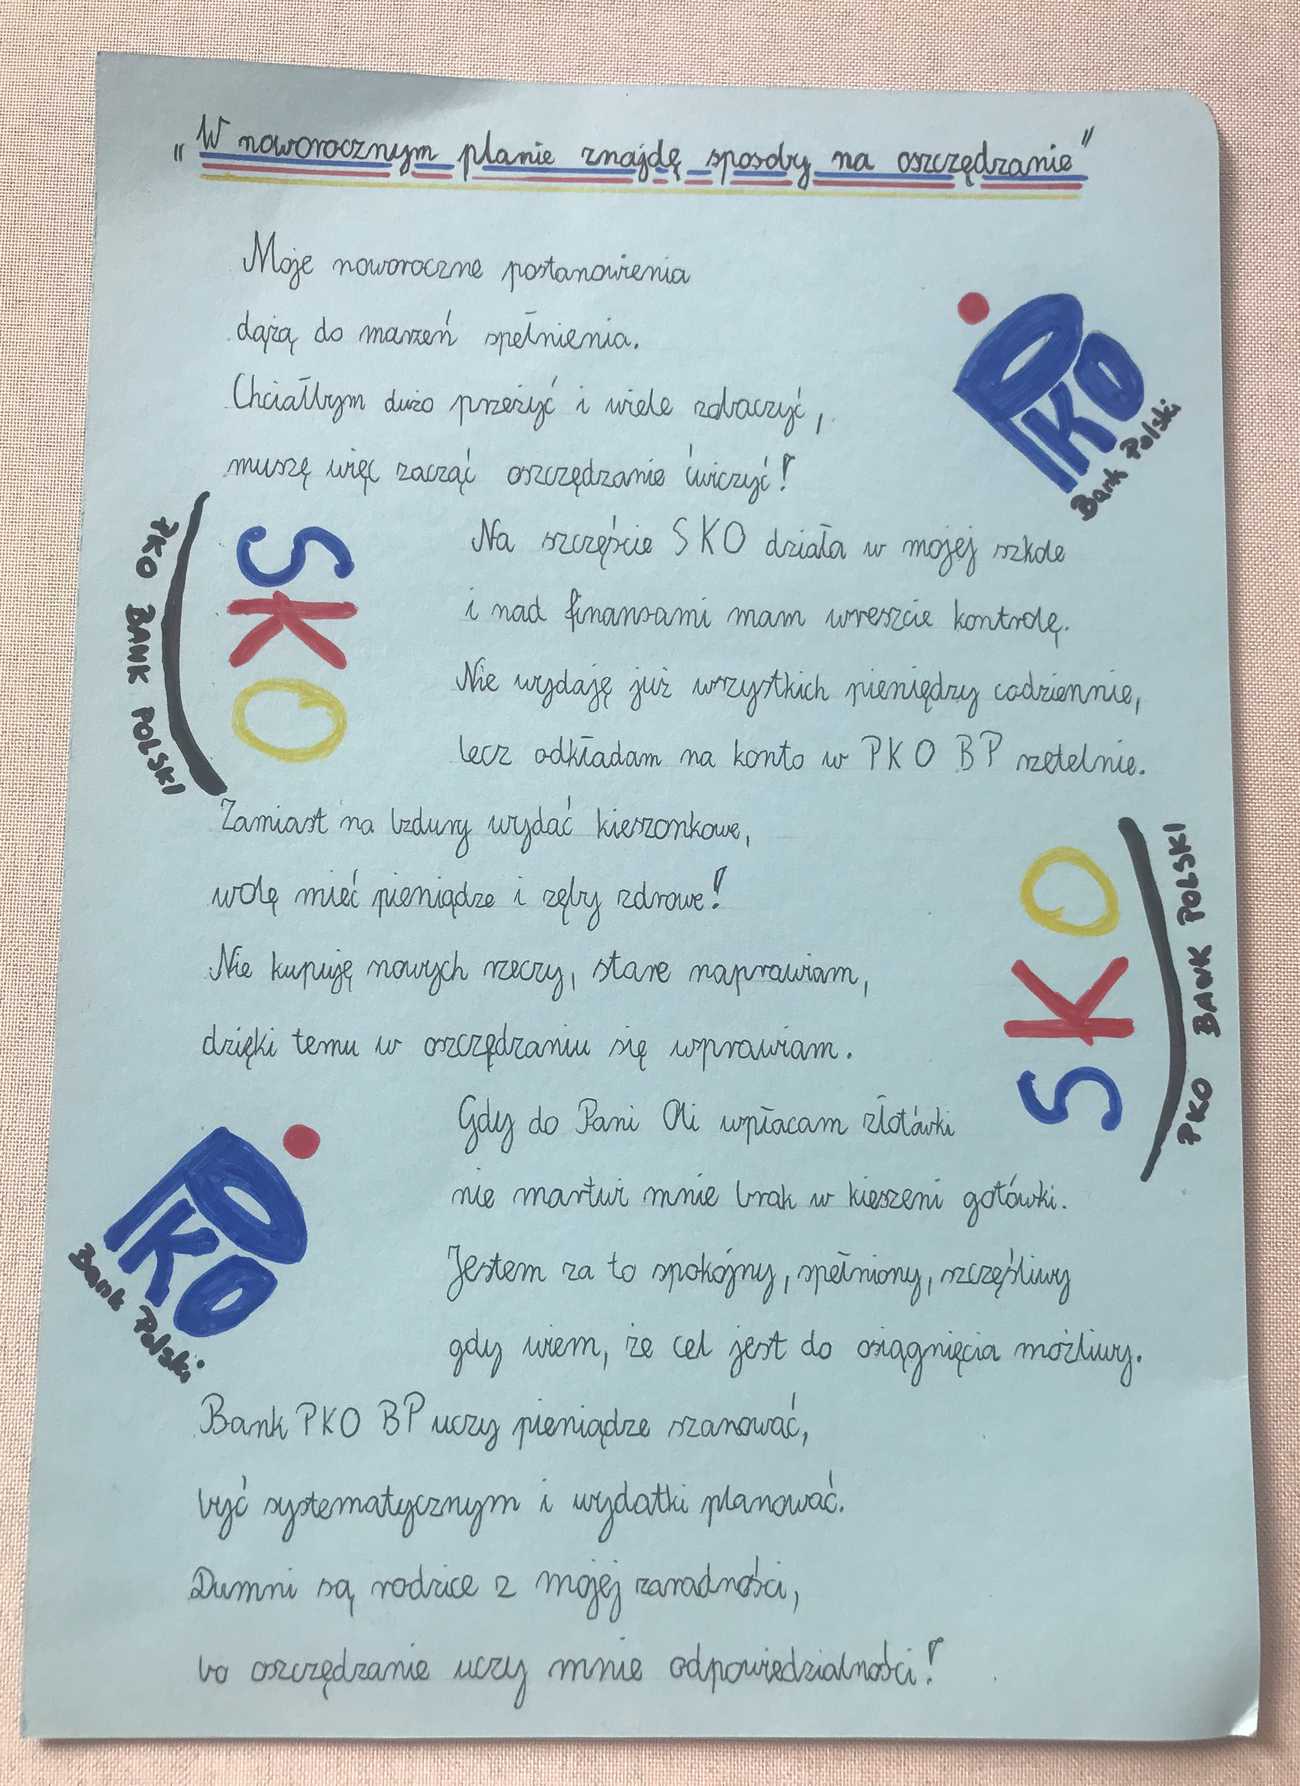 „W noworocznym planie znajdę sposoby na oszczędzanie"
Moje noworoczne postanowienia
dążą do marzeń spełnienia.
Chciałbym dużo przeżyć i wiele zobaczyć,
muszę więc zacząć oszczędzanie ćwiczyć!
PKO
Bank Polski
Na szczęście SKO działa w mojej szkole
i nad finansami mam wreszcie kontrolę.
Nie wydaję już wszystkich pieniędzy codziennie,
lecz odkładam na konto w PKO BP rzetelnie.
SKO
PKO BANK POLSKI
Zamiast na bzdury wydać kieszonkowe,
wolę mieć pieniądze i zęby zdrowe!
Nie kupuję nowych rzeczy, stare naprawiam,
dzięki temu w oszczędzaniu się wprawiam.
SKO
PKO BANK POLSKI
Gdy do Pani Oli wpłacam złotówki
nie martwi mnie brak w kieszeni gotówki.
Jestem za to spokojny, spełniony, szczęśliwy
gdy wiem, że cel jest do osiągnięcia możliwy.
PKO
Bank Polski
Bank PKO BP uczy pieniądze szanować,
być systematycznym i wydatki planować.
Dumni są rodzice z mojej zaradności,
bo oszczędzanie uczy mnie odpowiedzialności!